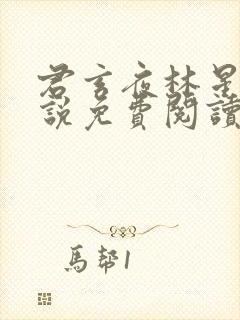 君言夜林星
說免費閱讀
馬幫1